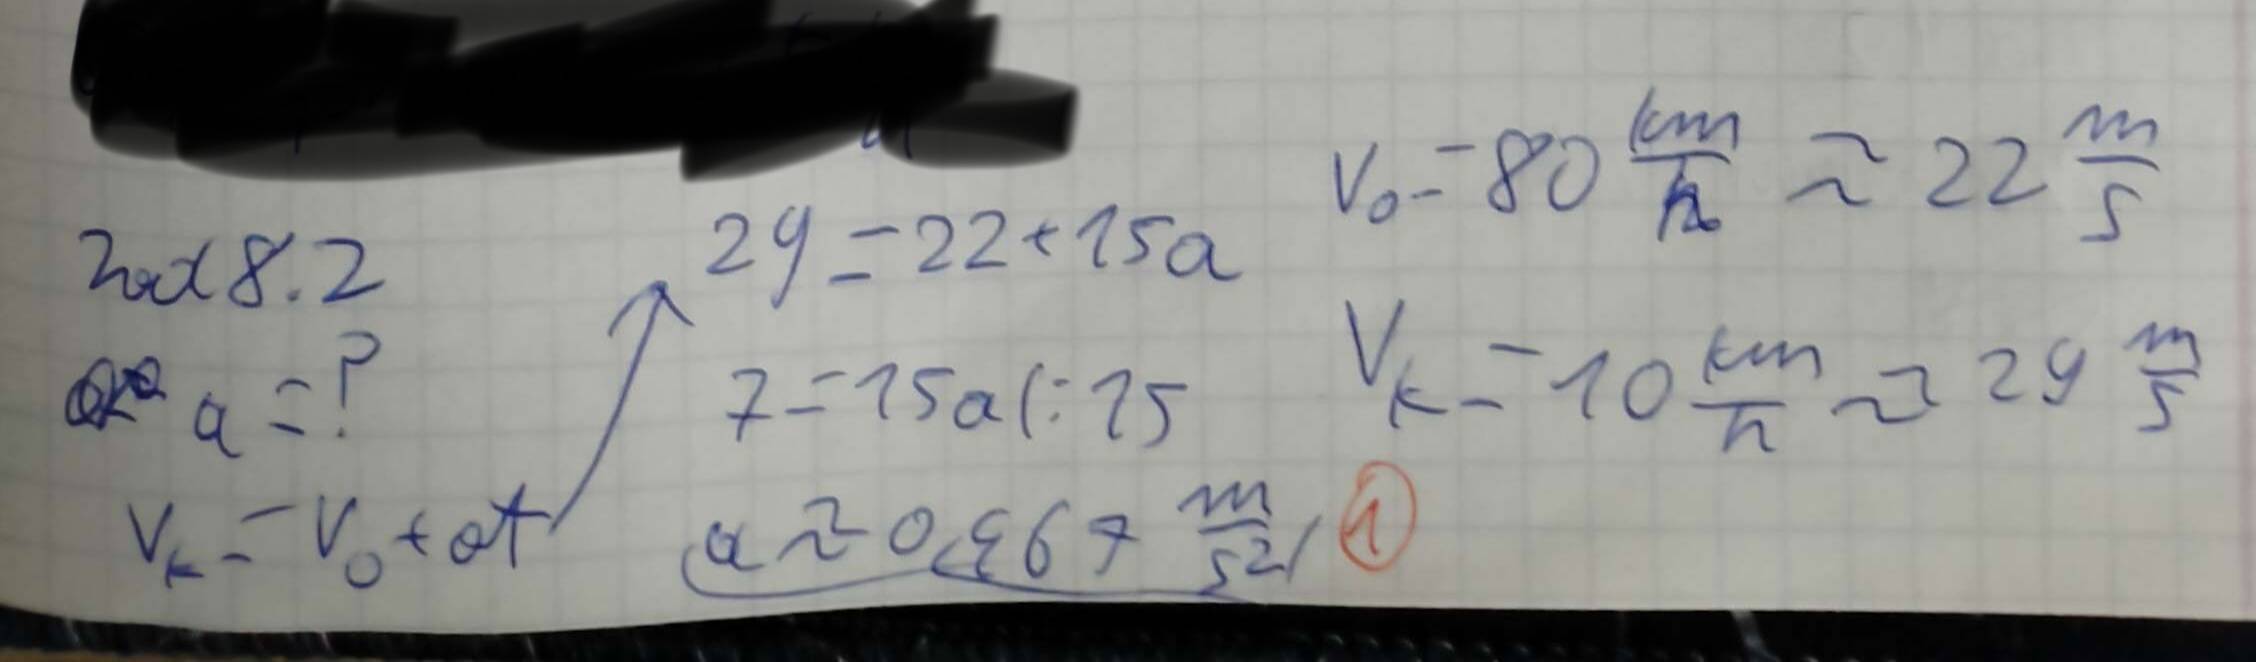 Zad 8.2
a = ?
V_k = V_0 + at
29 = 22 + 15a
7 = 15a |: 15
a ≈ 0,467 m/s²
①
V_0 = 80 km/h ≈ 22 m/s
V_k = 10 km/h ≈ 29 m/s